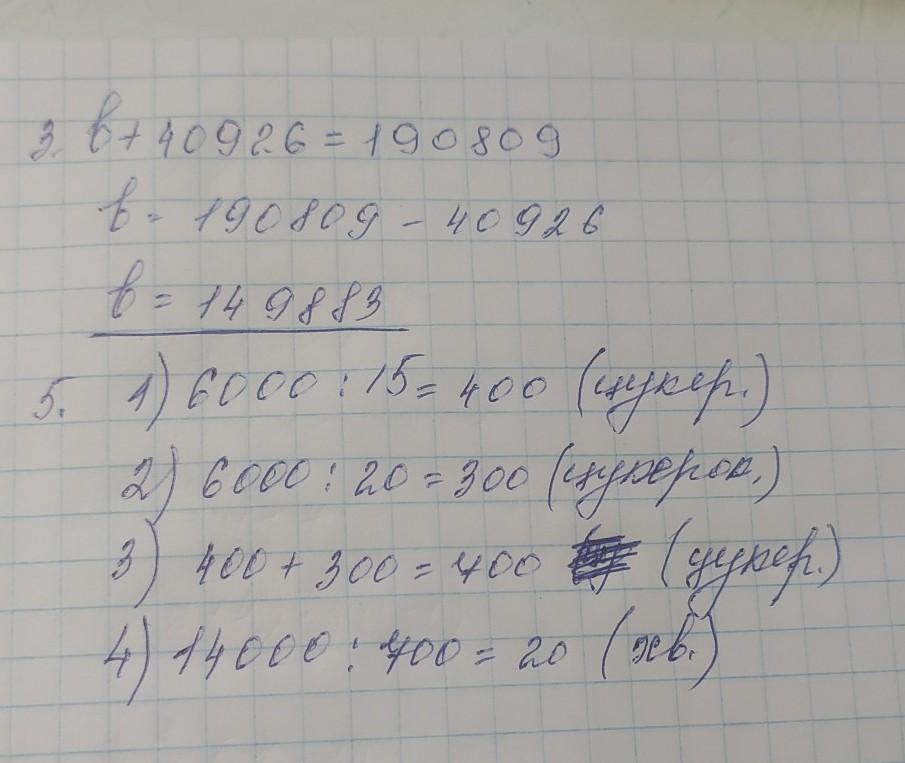 3. b + 40926 = 190809
b = 190809 - 40926
b = 149883
5. 1) 6000 : 15 = 400 (цукер.)
2) 6000 : 20 = 300 (цукерок.)
3) 400 + 300 = 700 (цукер.)
4) 14000 : 700 = 20 (хв.)